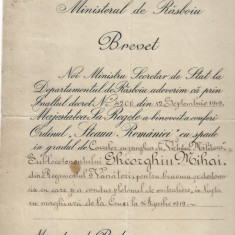 Ministerul de Răsboiu
Brevet
Noi Ministru Secretar de Stat la
Departamentul de Răsboiu, adeverim că prin
Înaltul decret No 4200 din 12 Septemvrie 1919
Majestatea Sa Regele a binevoit a conferi
Ordinul „Steaua României” cu spade
în gradul de Cavaler cu panglica de „Virtute Militară”
Sublocotenentului Gheorghiu Mihai,
din Regimentul Vânători, pentru bravura și destoinicia
cu care și-a condus plotonul de mitraliere, în lupta
cu maghiarii de la